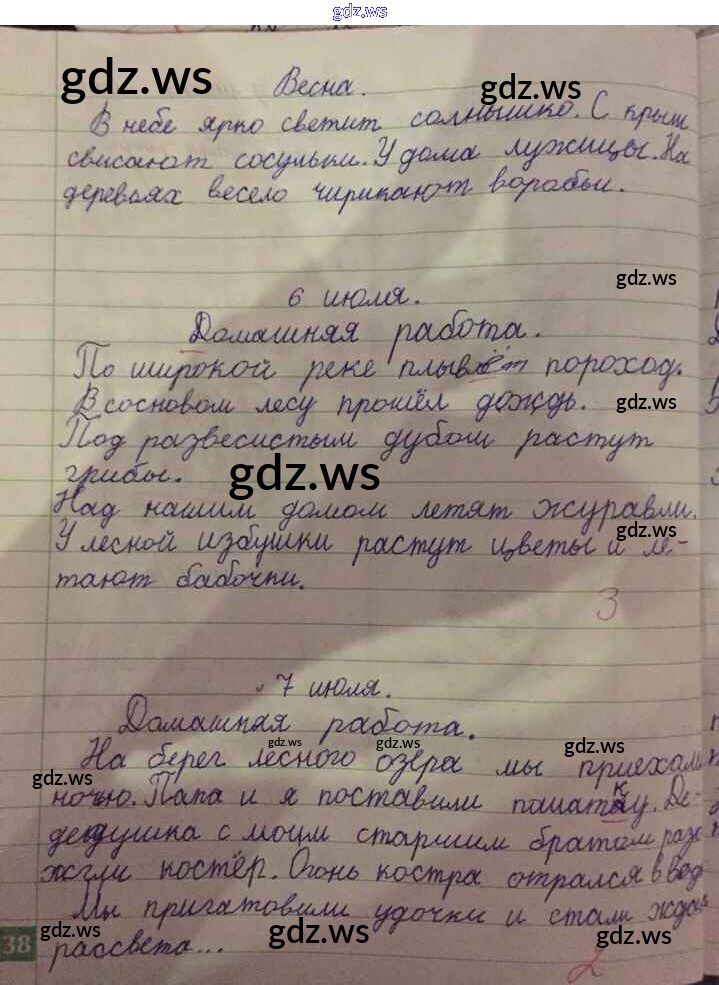 gdz.ws
gdz.ws
gdz.ws
Весна.
В небе ярко светит солнышко. С крыш
свисают сосульки. У дома лужицы. На
деревьях весело чирикают воробьи.
gdz.ws
6 июля.
Домашняя работа.
По широкой реке плывёт пороход.
gdz.ws
В сосновом лесу прошёл дождь.
gdz.ws
Под развесистым дубом растут
грибы.
gdz.ws
Над нашим домом летят журавли.
gdz.ws
У лесной избушки растут цветы и ле-
тают бабочки.
3
7 июля.
Домашняя работа.
gdz.ws
gdz.ws
gdz.ws
На берег лесного озера мы приехали
gdz.ws
gdz.ws
ночью. Папа и я поставили палатку. Де-
дедушка с моим старшим братом разо
жгли костёр. Огонь костра отрался в вод
Мы пригатовили удочки и стали ждат
gdz.ws
gdz.ws
gdz.ws
38
рассвета...
2
gdz.ws